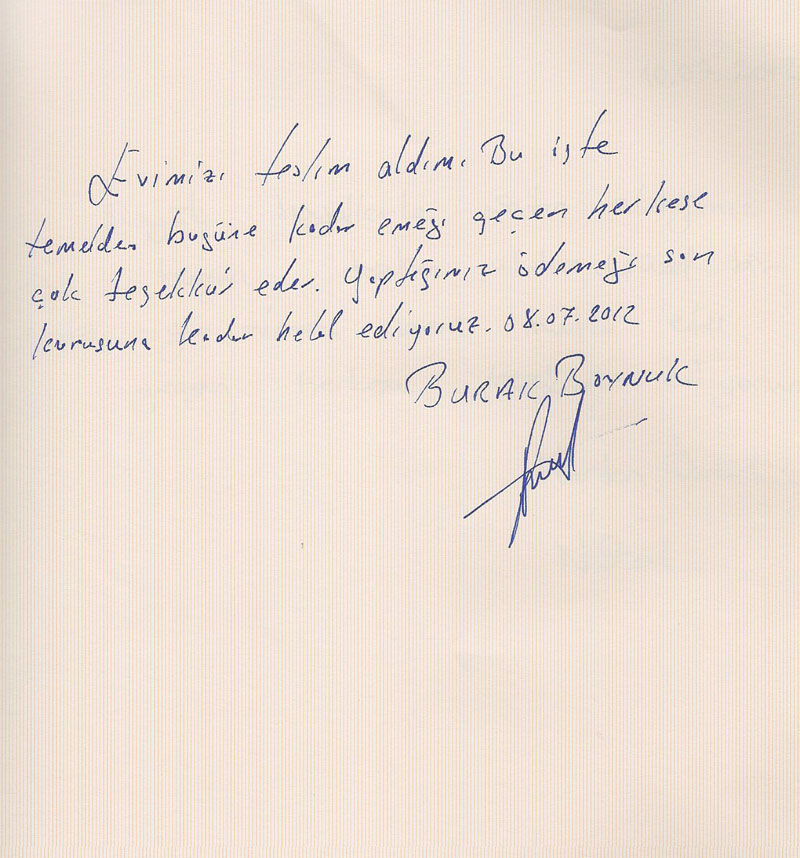 Evimizi teslim aldım. Bu işte
temelden bugüne kadar emeği geçen herkese
çok teşekkür eder. Yaptığımız ödemeği son
kuruşuna kadar helal ediyoruz. 08.07.2012
BURAK BOYNUK